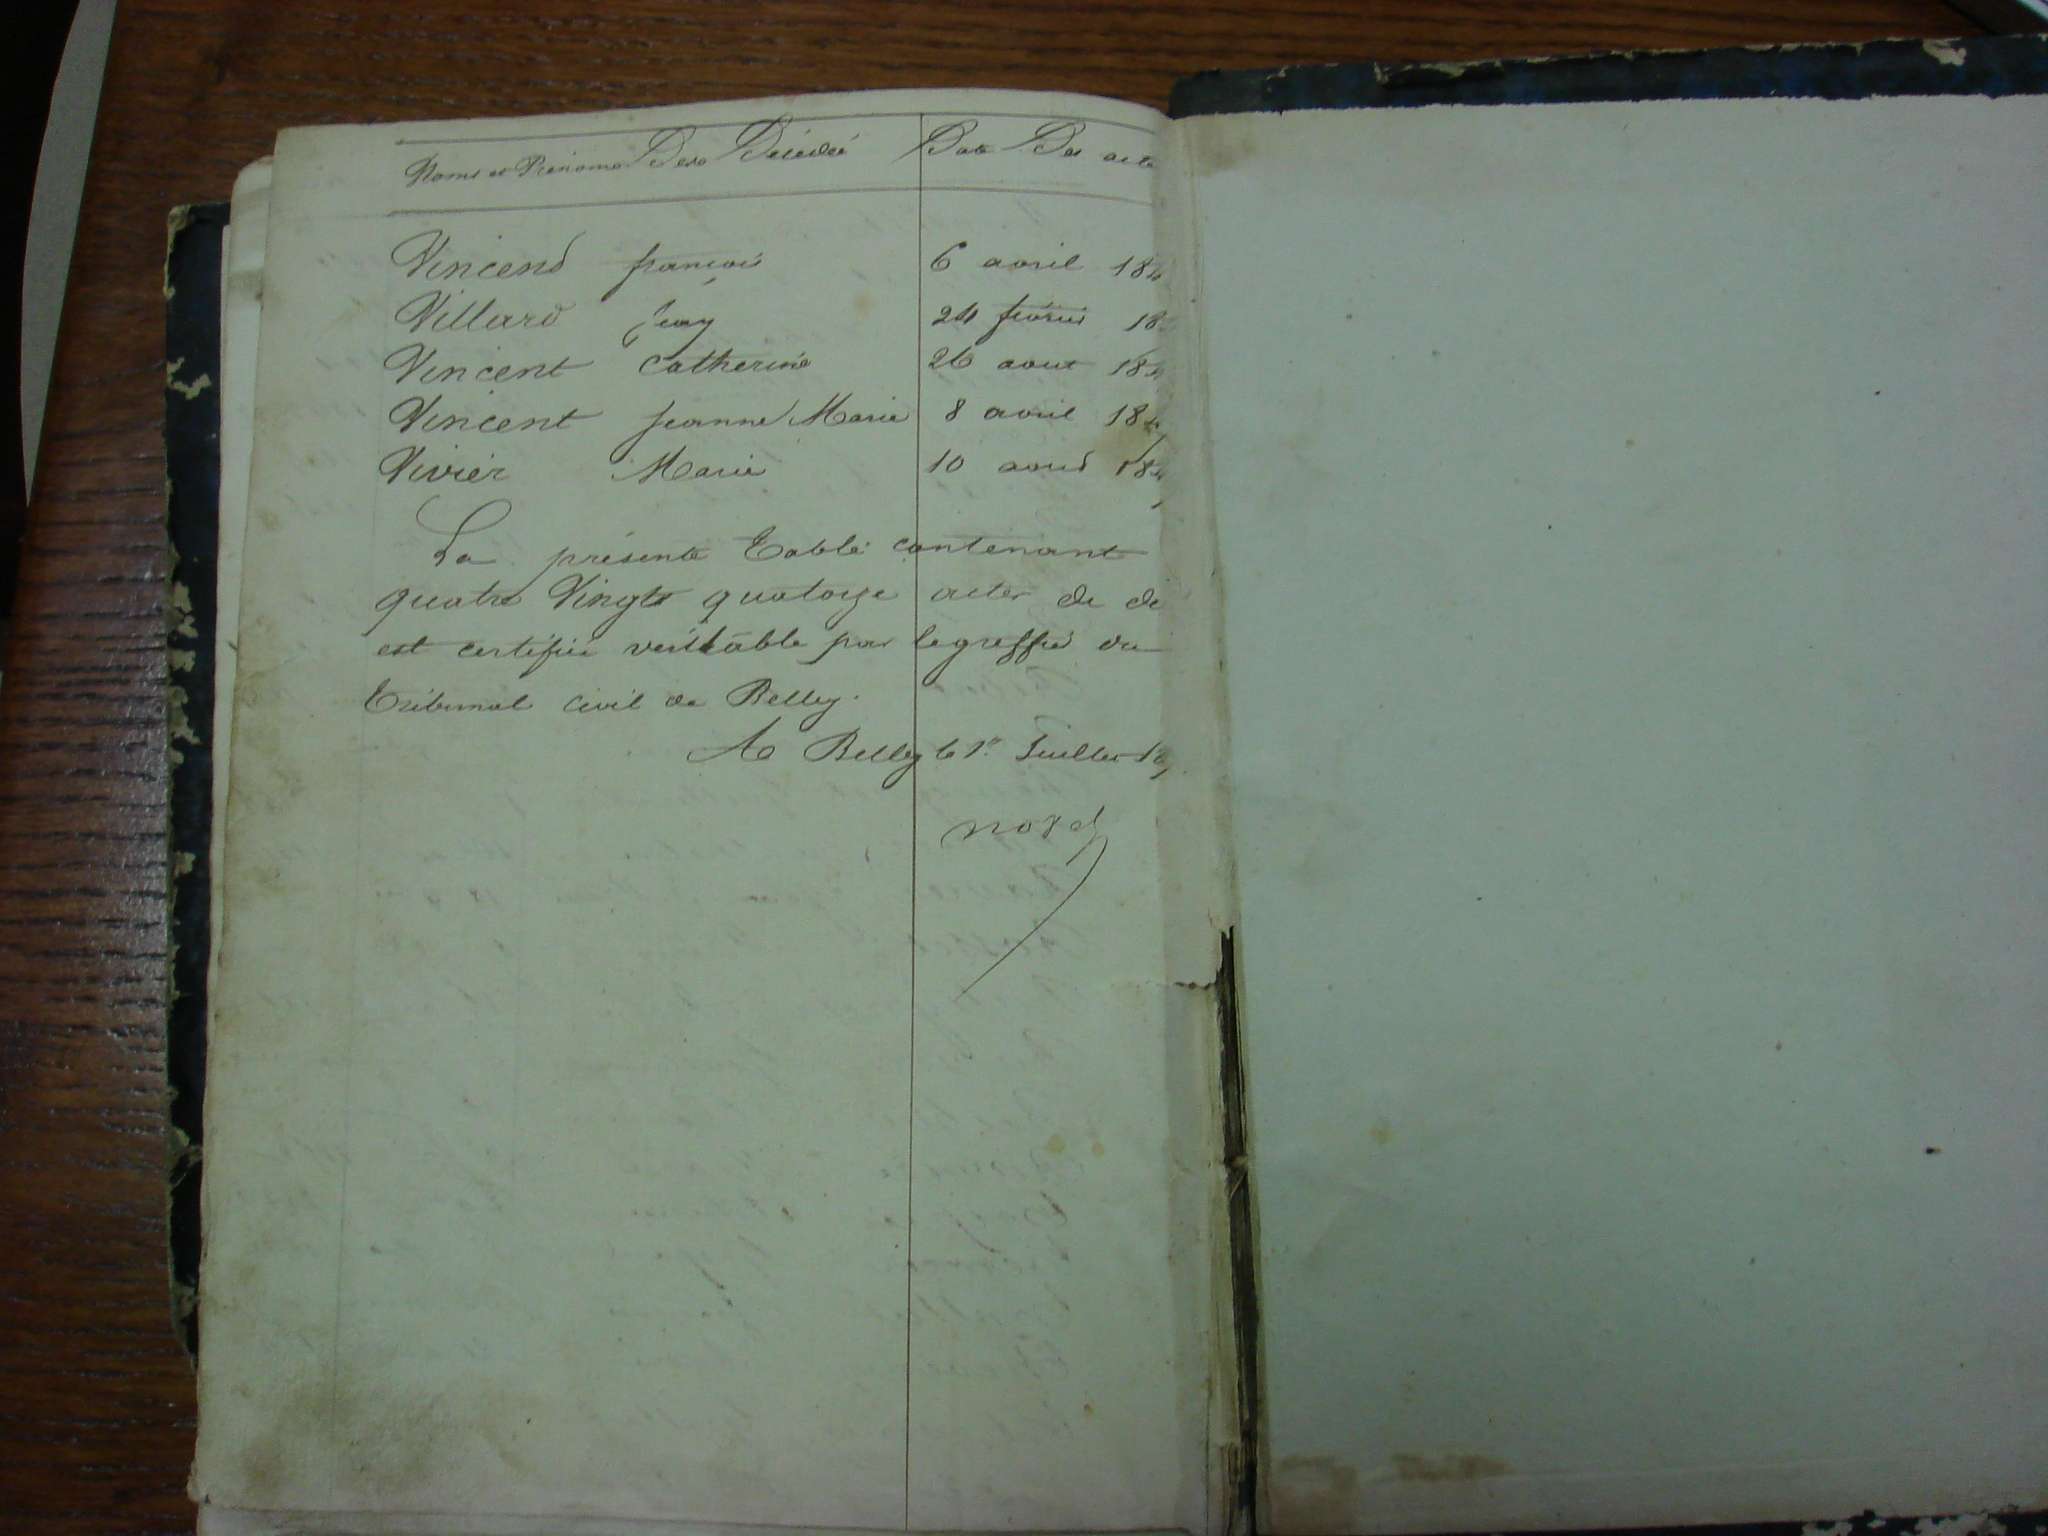 Noms et Prénoms Des Décédés Date Des acte
Vincend françois 6 avril 18
Villard Jean 24 février 18
Vincent Catherine 26 aout 18
Vincent Jeanne Marie 8 avril 18
Vivier Marie 10 18
La présente table contenant
quatre Vingts quatorze actes de dé
est certifiée véritable par le greffier du
Tribunal civil de Belley.
A Belley le 1er Juillet 18